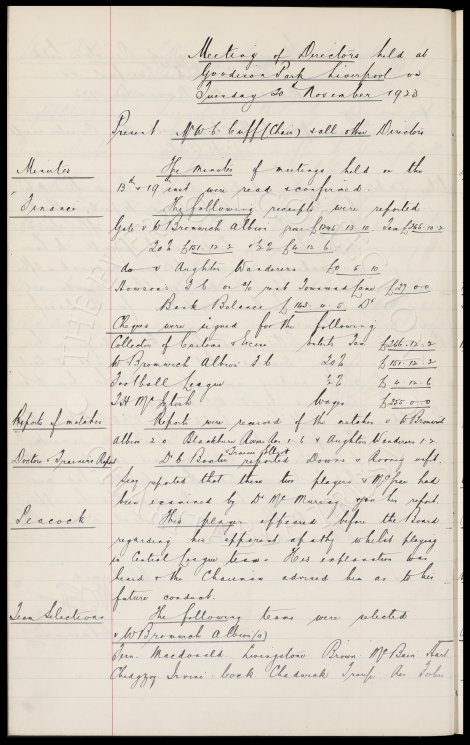 Meeting of Directors held at
Goodison Park Liverpool on
Tuesday 20th November 1923
Present Mr W. C. Cuff (Chair) & all other Directors
Minutes
The minutes of meetings held on the
13th & 19th inst were read & confirmed.
Finance
The following receipts were reported
Gate v W Bromwich Albion gross £1245 13 10. Tax £266 12 2
20% £151 12 2 & ½% £4 12 6
do v Aughton Wanderers £0 5 10
F C on a/c rent Townsend Lane £27 0 0
Bank Balance £ Dr
Cheques were signed for the following
Collector of Customs & Excise Ents Tax £266 12 2
W Bromwich Albion F C 20% £151 12 2
Football League ½% £4 12 6
Wages £255 0 0
Reports of matches
Reports were received of the matches v W Bromwich
Albion 2 0 Blackburn Rovers Res 1-6 & Aughton Wanderers 1-2
Doctors & Trainers Report
Dr C Baxter reported Downs & Rooney unfit.
reported that these two players & McCrae had
been examined by Dr Mc Murray & on his report.
Peacock
This player appeared before the Board
regarding his apparent apathy whilst playing
in Central League team. His explanation was
heard & the Chairman advised him as to his
future conduct.
Team Selections
The following teams were selected
v W Bromwich Albion (a)
Fern. Macdonald Livingstone Brown McBain Hart
Chedgzoy Irvine Cock Chadwick Troup Res Forbes